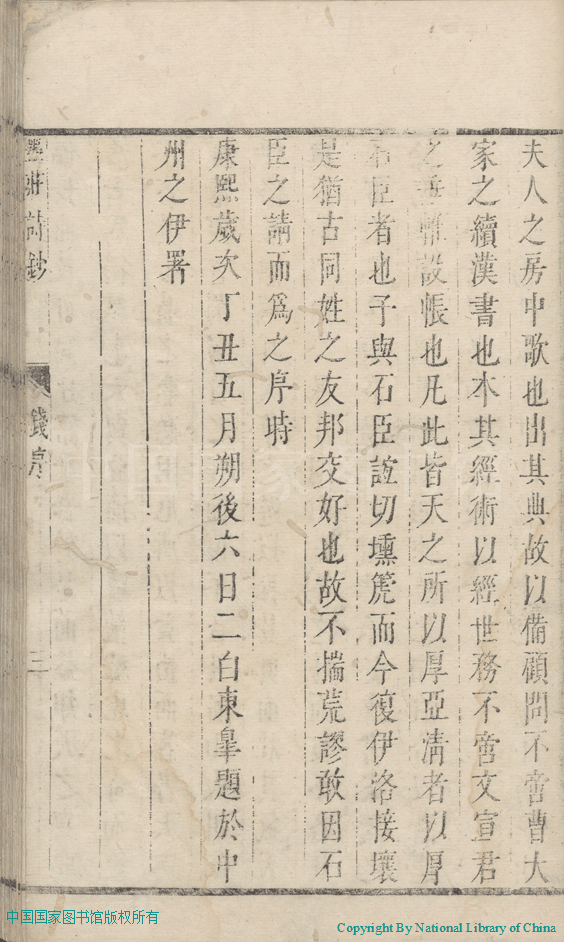 夫人之房中歌也出其典故以備顧問不啻曹大
家之續漢書也本其經術以經世務不啻文宣君
之垂帷設帳也凡此皆天之所以厚亞清者以厚
石臣者也予與石臣誼切壎篪而今復伊洛接壤
是猶古同姓之友邦交好也故不揣荒謬敢因石
臣之請而爲之序時
康熙歲次丁丑五月朔後六日二白東臯題於中
州之伊署
墨莊詩鈔
錢序
三
中国国家图书馆版权所有
Copyright By National Library of China